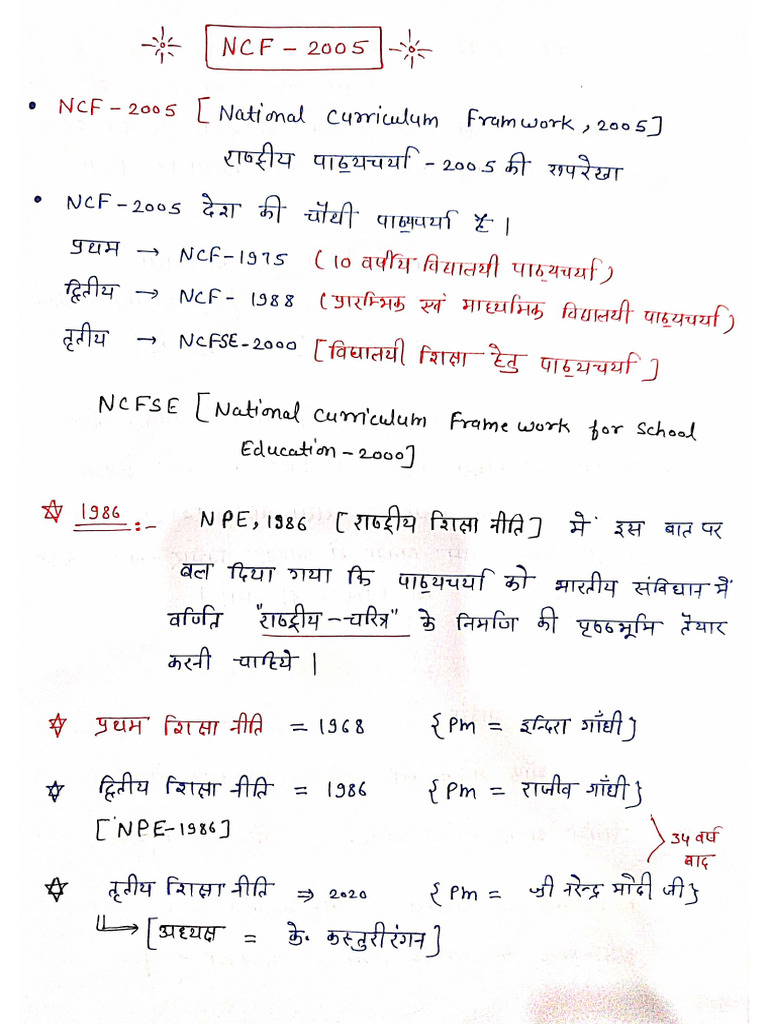 NCF - 2005
• NCF - 2005 [National Curriculum Framwork, 2005]
राष्ट्रीय पाठ्यचर्या - 2005 की रूपरेखा
• NCF - 2005 देश की चौथी पाठ्यचर्या है।
प्रथम → NCF-1975 (10 वर्षीय विद्यालयी पाठ्यचर्या)
द्वितीय → NCF - 1988 (प्रारम्भिक एवं माध्यमिक विद्यालयी पाठ्यचर्या)
तृतीय → NCFSE-2000 [विद्यालयी शिक्षा हेतु पाठ्यचर्या]
NCFSE [National Curriculum Frame work for School
Education - 2000]
☆ 1986 :- NPE, 1986 [राष्ट्रीय शिक्षा नीति] में इस बात पर
बल दिया गया कि पाठ्यचर्या को भारतीय संविधान में
वर्णित "राष्ट्रीय - चरित्र" के निर्माण की पृष्ठभूमि तैयार
करनी चाहिये।
☆ प्रथम शिक्षा नीति = 1968 {Pm = इन्दिरा गाँधी}
☆ द्वितीय शिक्षा नीति = 1986 {Pm = राजीव गाँधी}
[NPE-1986]
34 वर्ष
बाद
☆ तृतीय शिक्षा नीति ⇒ 2020 {Pm = श्री नरेन्द्र मोदी जी}
↳ [अध्यक्ष = के. कस्तुरीरंगन]